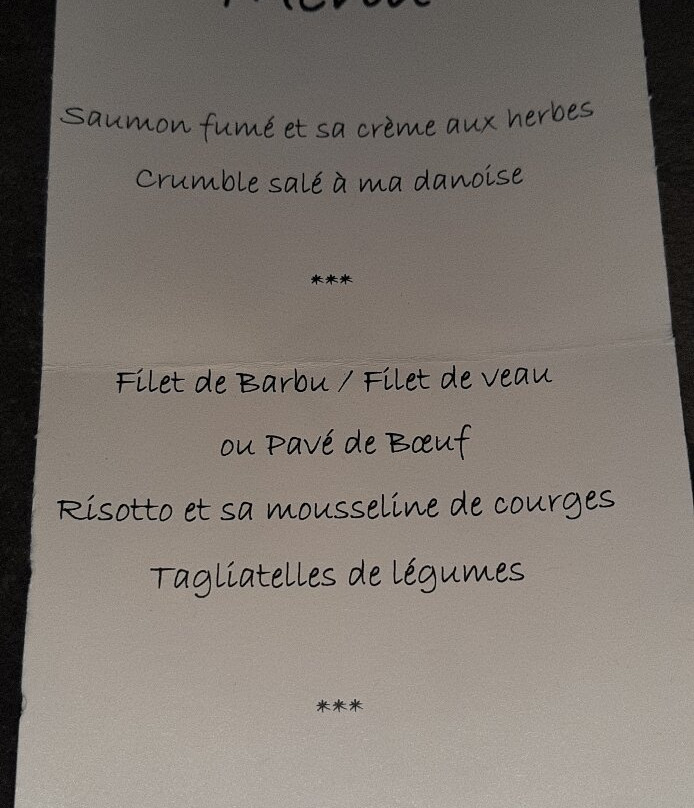 Menu
Saumon fumé et sa crème aux herbes
Crumble salé à ma danoise
***
Filet de Barbu / Filet de veau
ou Pavé de Bœuf
Risotto et sa mousseline de courges
Tagliatelles de légumes
***